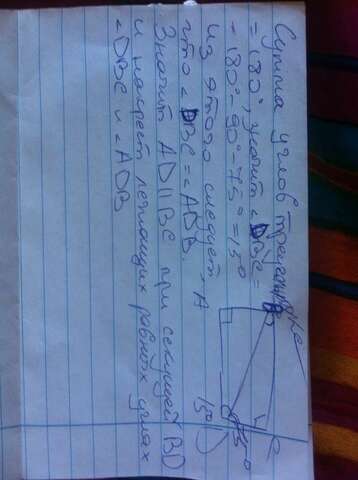 Сумма углов треугольника
= 180°, значит ∠DBC =
= 180° - 90° - 75° = 15°
из этого следует,
что ∠DBC = ∠ADB.
Значит AD || BC при секущей BD
и накрест лежащих равных углах
∠DBC и ∠ADB
A
15°
75°
C